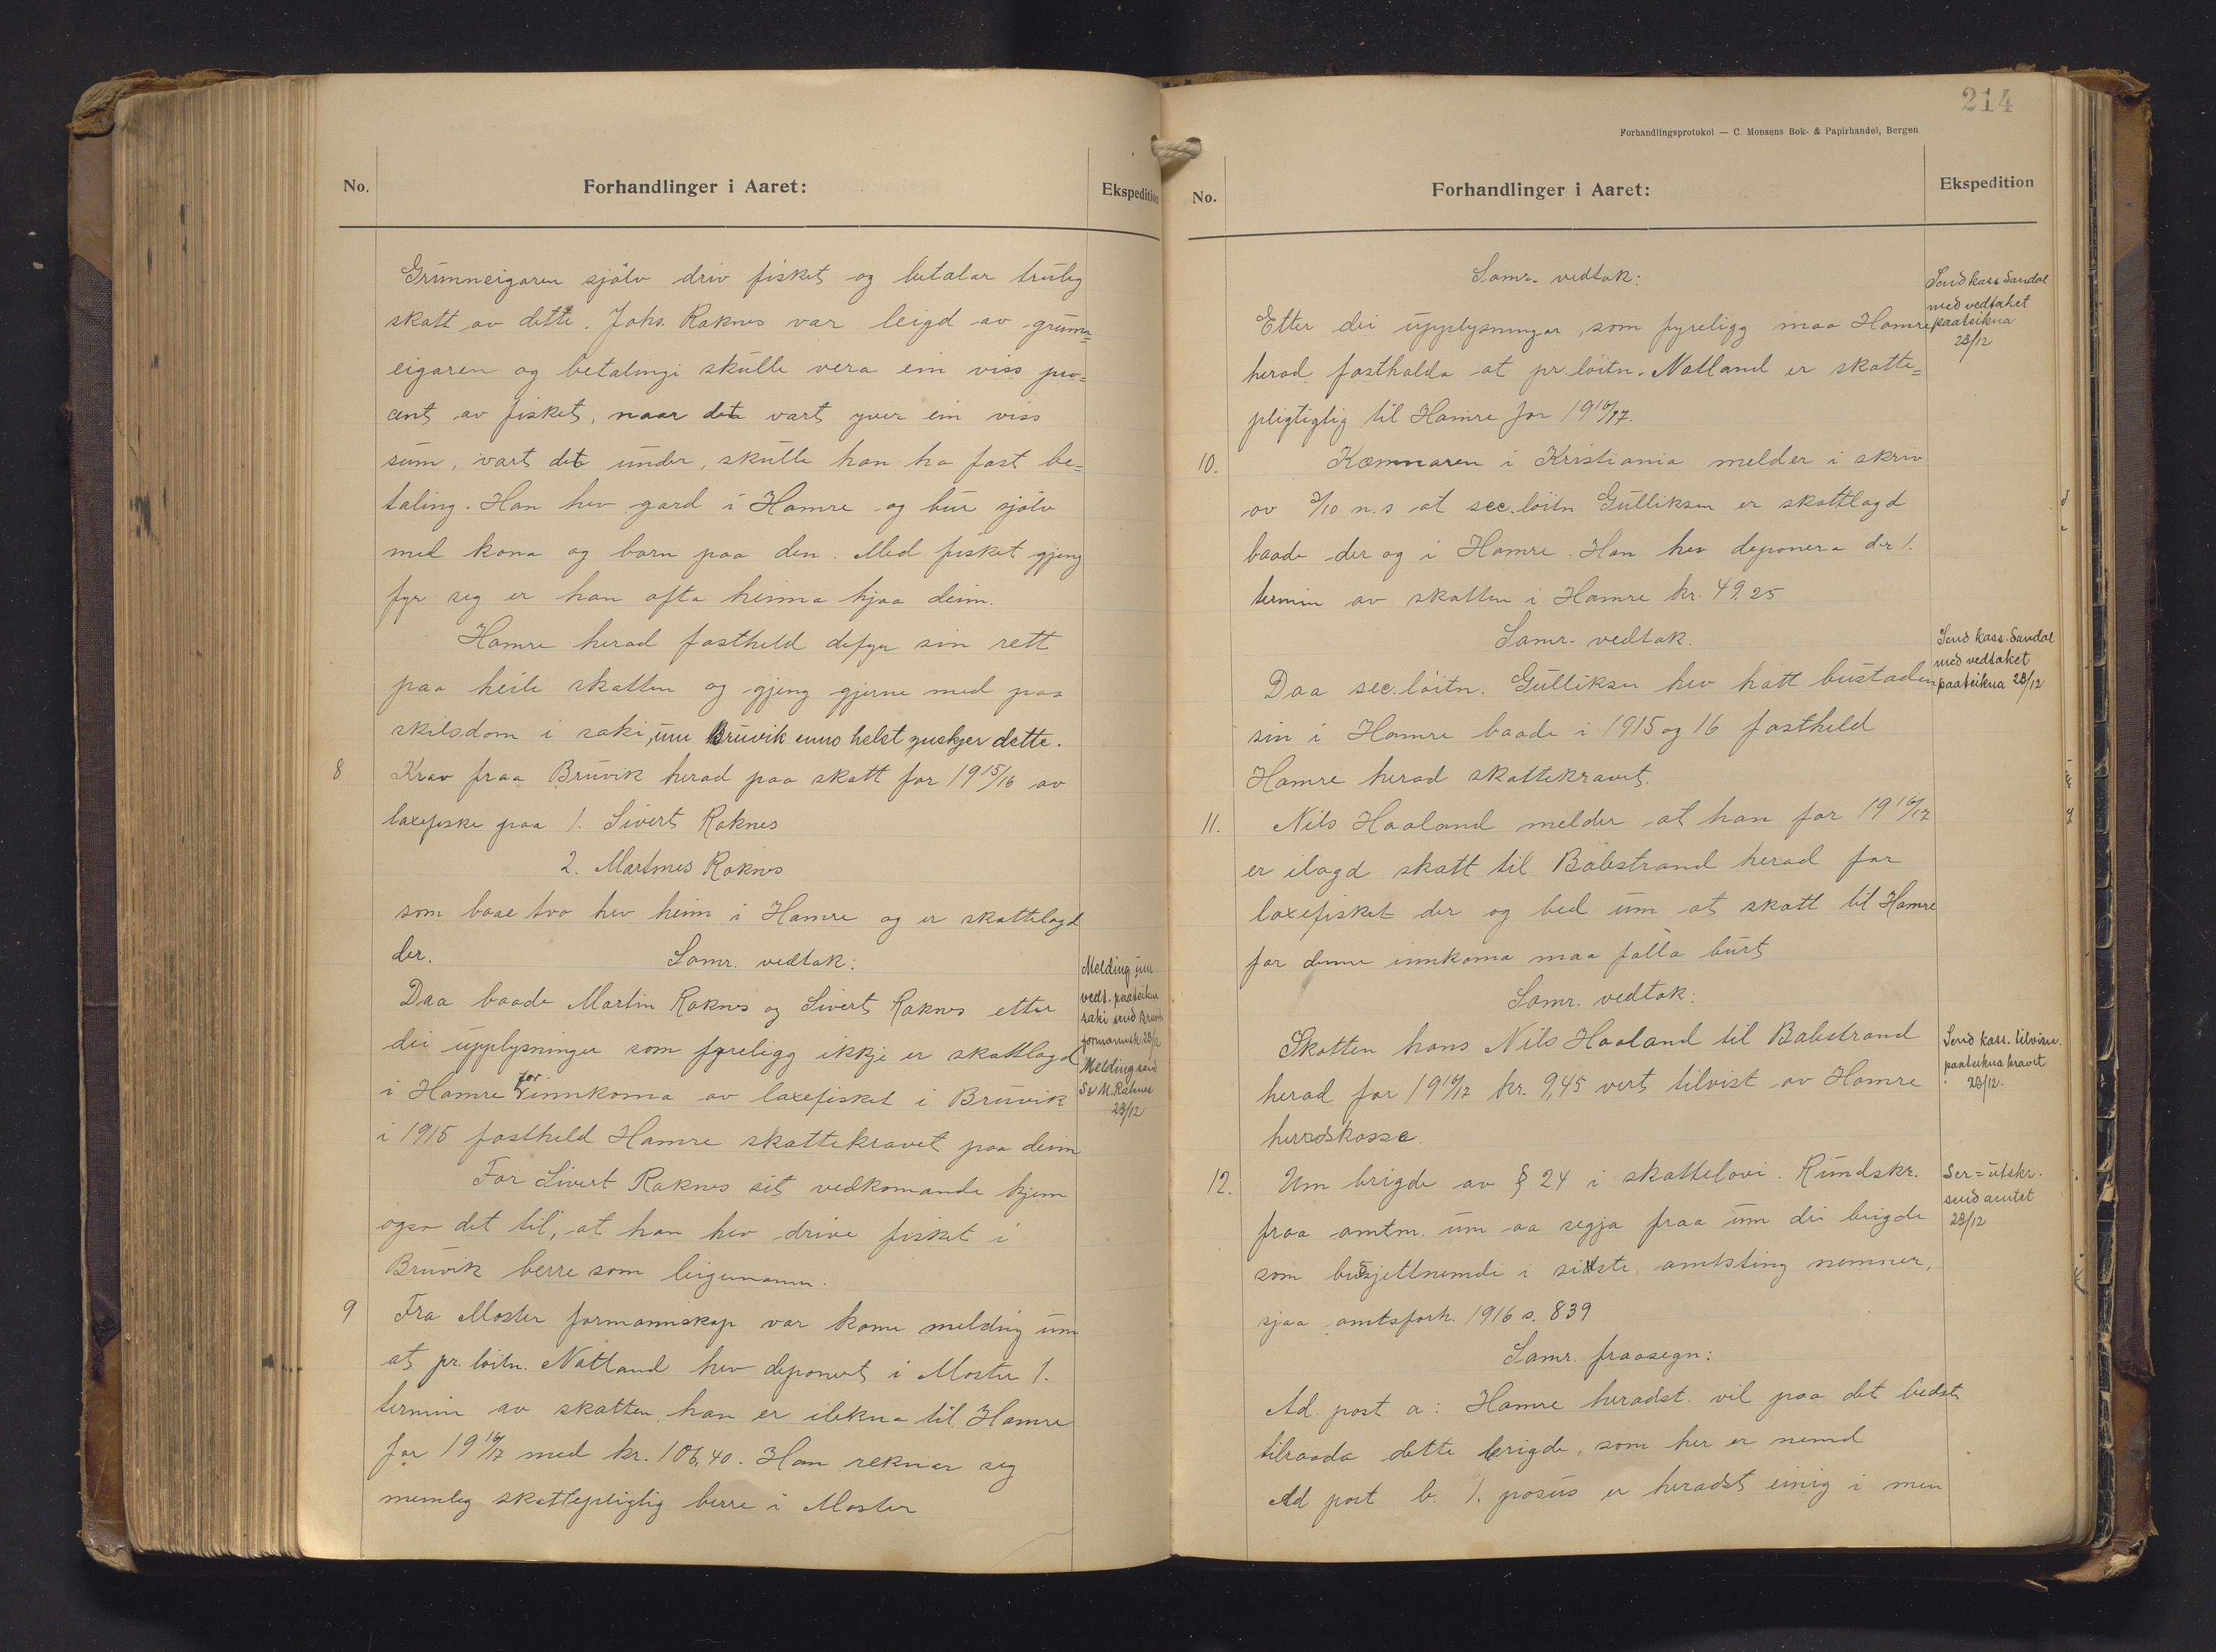 No.
Forhandlinger i Aaret:
Ekspedition
Grunneigaren sjölv driv fisket og betalar truleg
skatt av dette. Johs. Raknes var leigd av grunn=
eigaren og betalingi skulle vera ein viss pro=
cent av fisket, naar det vart yver ein viss
sum, vart det under, skulle han ha fast be=
taling. Han hev gard i Hamre og bur sjölv
med kona og born paa den. Med fisket gjeng
fyr seg er han ofta heima hjaa deim.
Hamre herad fastheld difyr sin rett
paa heile skatten og gjeng gjerne med paa
skilsdom i saki, um Bruvik enno helst ynskjer dette.
8 Krav fraa Bruvik herad paa skatt for 1915/16 av
laxefiske paa 1. Sivert Raknes
2. Martines Raknes
som baae tvo hev heim i Hamre og er skattelagd
der. Samr. vedtak:
Daa baade Martin Raknes og Sivert Raknes etter
dei upplysningar som fyreligg ikkje er skattlagd
i Hamre for innkoma av laxefisket i Bruvik
i 1915 fastheld Hamre skattekravet paa deim
For Sivert Raknes sit vedkomande kjem
ogso det til, at han hev drive fisket i
Bruvik berre som leigemann.
Melding um
vedt. paateikna
saki send Bruvik
formannsk. 28/12
Melding send
S og M. Raknes
28/12
9 Fra Moster formannskap var kome melding um
at pr. löitn. Natland hev deponert i Moster 1.
termin av skatten han er ilikna til Hamre
for 1916/17 med kr. 106,40. Han reknar seg
nemleg skattepligtig berre i Moster
214
Forhandlingsprotokol — C. Monsens Bok- & Papirhandel, Bergen
No.
Forhandlinger i Aaret:
Ekspedition
Samr. vedtak:
Etter dei upplysningar, som fyreligg maa Hamre
herad fasthalda at pr. löitn. Natland er skatte=
pligtigtig til Hamre for 1916/17.
Send kass. Sandal
med vedtaket
paateikna
28/12
10. Kæmnaren i Kristiania melder i skriv
av 3/10 n.s at sec. löitn Gulliksen er skattlagd
baade der og i Hamre. Han hev deponera der 1.
termin av skatten i Hamre kr. 49.25
Samr. vedtak.
Daa sec. löitn. Gulliksen hev hatt bustaden
sin i Hamre baade i 1915 og 16 fastheld
Hamre herad skattekravet.
Send kass. Sandal
med vedtaket
paateikna 28/12
11. Nils Haaland melder at han for 1916/17
er ilagd skatt til Balestrand herad for
laxefisket der og bed um at skatt til Hamre
for denne innkoma maa falla burt
Samr. vedtak:
Skatten hans Nils Haaland til Balestrand
herad for 1916/17 kr. 9,45 vert tilvist av Hamre
heradskasse.
Send kass. tilvisn.
paateikna kravet
28/12.
12. Um brigde av § 24 i skattelovi. Rundskr.
fraa amtm. um aa segja fraa um dei brigde
som budsjettnemdi i sidste amtsting nemner,
sjaa amtsforh. 1916 s. 839
Samr. fraasegn:
Ad. post a: Hamre heradst. vil paa det bedst
tilraada dette brigde, som her er nemd
Ad post b. 1. posius er heradst einig i men
Ser=utskr.
send amtet
28/12